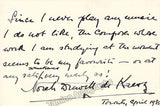 Since I never play any music
I do not like, the composer whose
work I am studying at the moment
seems to be my favourite — or at
any rate my best!
Norah Drewett de Kresz
Toronto, April 1932